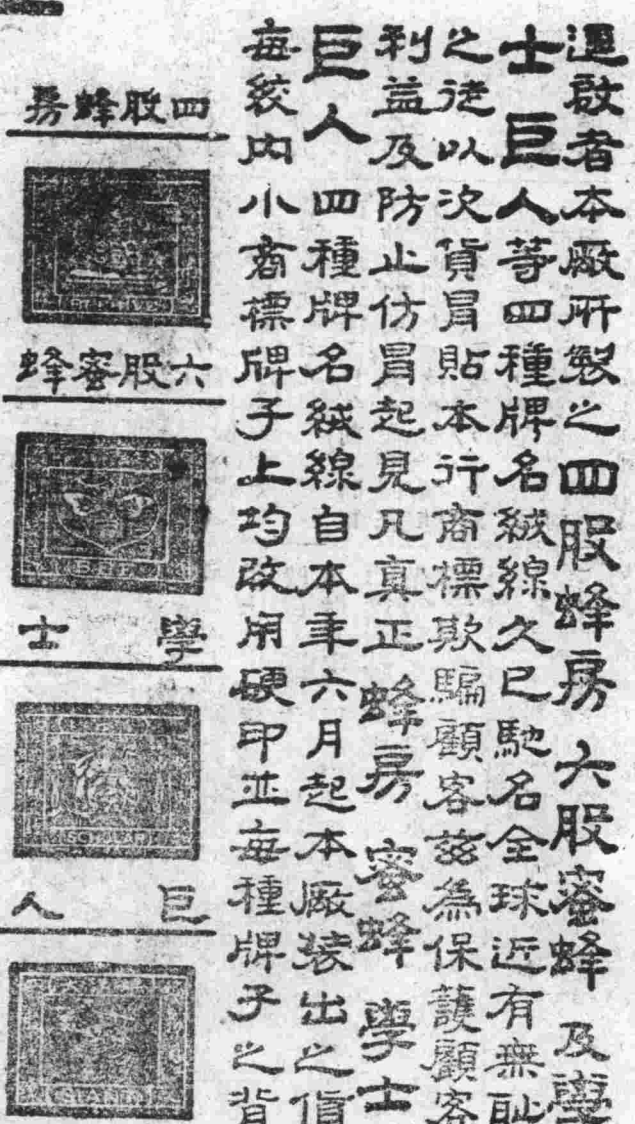 逕啟者本廠所製之四股蜂房六股蜜蜂及學
士巨人等四種牌名絨線久已馳名全球近有無恥
之徒以次貨冒貼本行商標欺騙顧客茲為保護顧客
利益及防止仿冒起見凡真正蜂房蜜蜂學士
巨人四種牌名絨線自本年六月起本廠裝出之貨
每絞內小商標牌子上均改用硬印並每種牌子之背
四股蜂房
六股蜜蜂
學士
SCHOLAR
巨人
GIANT